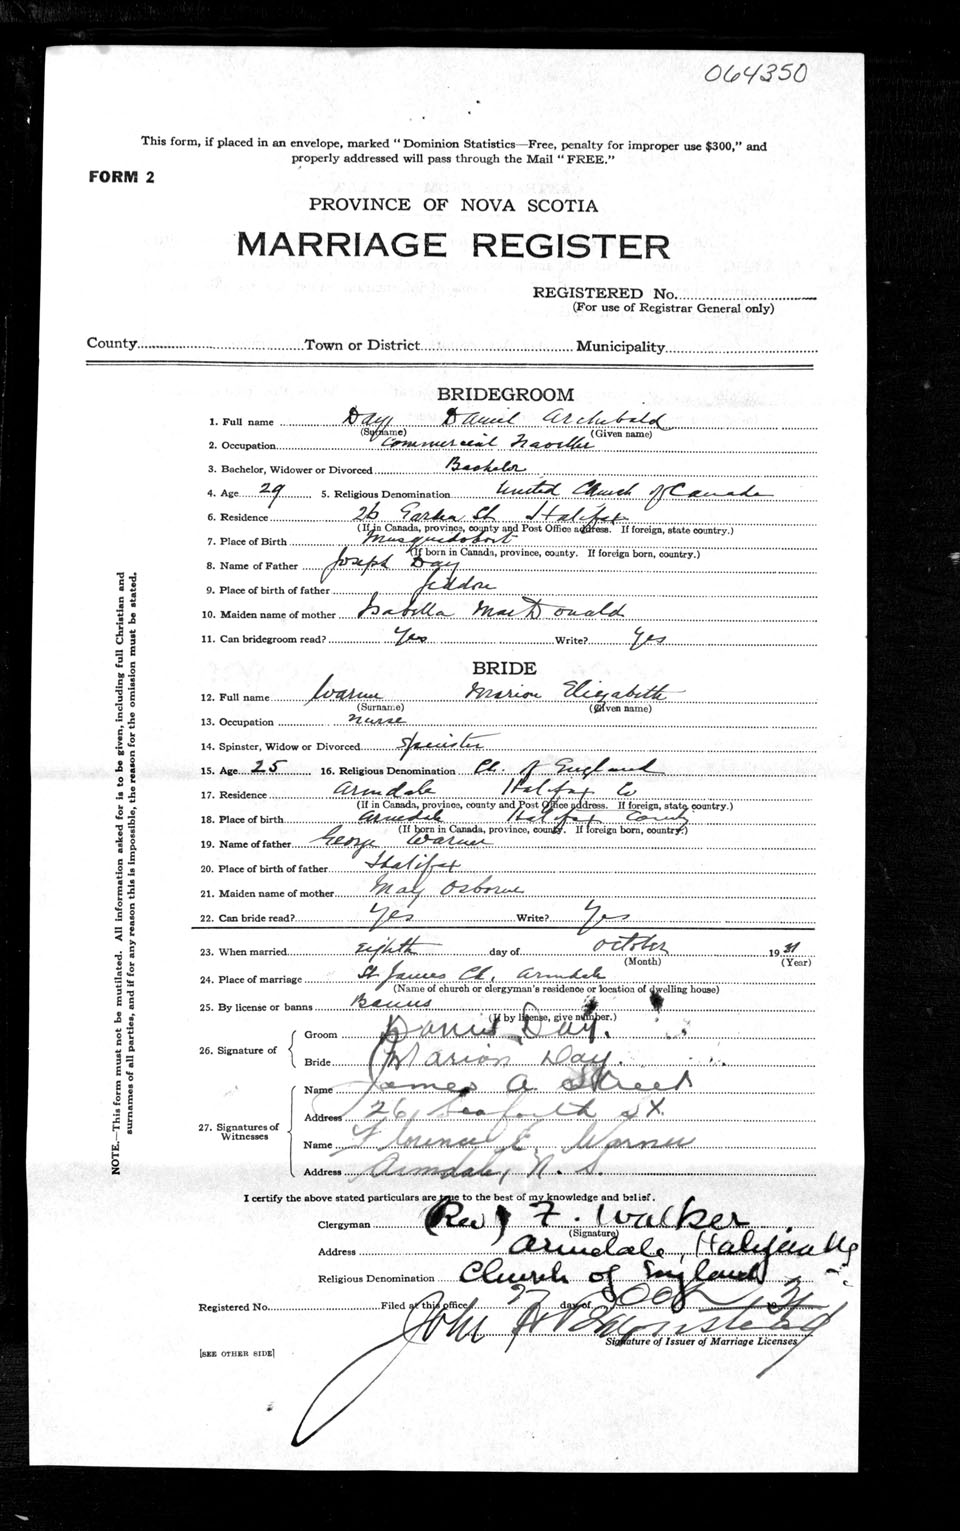 064350
This form, if placed in an envelope, marked "Dominion Statistics—Free, penalty for improper use $300," and
properly addressed will pass through the Mail "FREE."
FORM 2
PROVINCE OF NOVA SCOTIA
MARRIAGE REGISTER
REGISTERED No.
(For use of Registrar General only)
County Town or District Municipality
BRIDEGROOM
1. Full name Day Daniel Archibald
(Surname) (Given name)
2. Occupation Commercial Traveller
3. Bachelor, Widower or Divorced Bachelor
4. Age 29 5. Religious Denomination United Church of Canada
6. Residence 26 St Halifax
(If in Canada, province, county and Post Office address. If foreign, state country.)
7. Place of Birth Musquodoboit
(If born in Canada, province, county. If foreign born, country.)
8. Name of Father Joseph Day
9. Place of birth of father Jeddore
10. Maiden name of mother Isabella MacDonald
11. Can bridegroom read? Yes Write? Yes
BRIDE
12. Full name Warner Marion Elizabeth
(Surname) (Given name)
13. Occupation Nurse
14. Spinster, Widow or Divorced Spinster
15. Age 25 16. Religious Denomination Ch. of England
17. Residence Armdale Halifax Co
(If in Canada, province, county and Post Office address. If foreign, state country.)
18. Place of birth Armdale Halifax County
(If born in Canada, province, county. If foreign born, country.)
19. Name of father George Warner
20. Place of birth of father Halifax
21. Maiden name of mother May Osborne
22. Can bride read? Yes Write? Yes
23. When married Eighth day of October 1931
(Month) (Year)
24. Place of marriage St James Ch. Armdale
(Name of church or clergyman's residence or location of dwelling house)
25. By license or banns Banns
(If by license, give number.)
26. Signature of
Groom Daniel Day.
Bride Marion Day.
27. Signatures of
Witnesses
Name James A Street
Address 26 Seaforth St.
Name Florence E. Warner
Address Armdale, N. S
I certify the above stated particulars are true to the best of my knowledge and belief.
Clergyman (Rev) F. Walker
(Signature)
Address Armdale, Halifax NS
Religious Denomination Church of England
Registered No. Filed at this office 9 day of Oct 1931
John
Signature of Issuer of Marriage Licenses
[SEE OTHER SIDE]
NOTE.—This form must not be mutilated. All information asked for is to be given, including full Christian and
surnames of all parties, and if for any reason this is impossible, the reason for the omission must be stated.